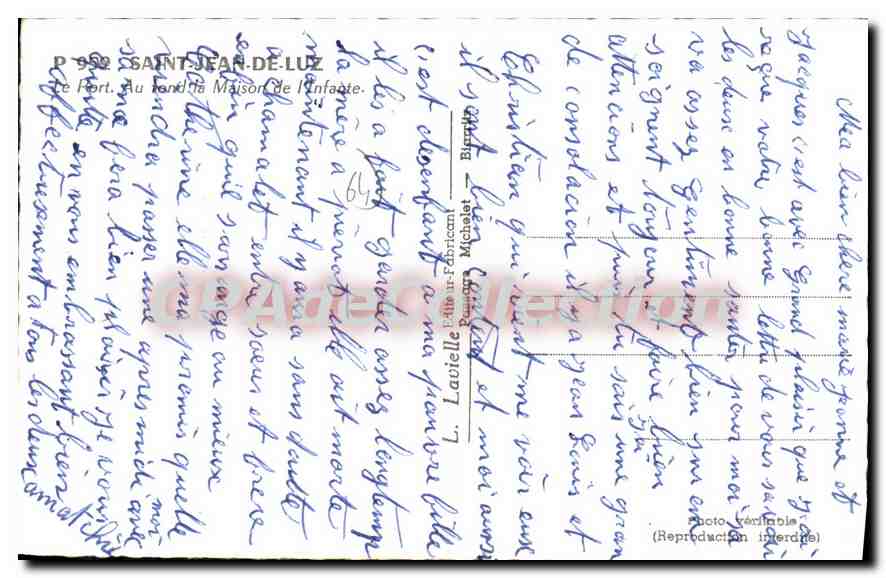 P 952 SAINT-JEAN-DE-LUZ
Le Port. Au fond la Maison de l'Infante.
L. Lavielle Editeur-Fabricant
Michelet — Biarritz
Photo véritable
(Reproduction interdite)
64
CPAdeCollection
Ma bien chere marie jeanne et
Jacques c'est avec grand plaisir que j'ai
reçue votre bonne lettre de vous savoir
les deux en bonne santer pour moi sa
va assez gentiment bien sur en
soignent toujour et faire bien
attencions et puis tu sais une gran
de consolacion il y a jean Louis et
Christian qui vient me voir eux
il sont bien content et moi aussi
c'est des enfant a ma pauvre fille
il les a fait garder assez longtemp
la mère a prevot elle ait morte
maintenant il y aura sans doute
a Chamalet entre sœur et frere
enfin qu'il s'arrange au mieux
Catherine elle ma promis quelle
viendra passer une apres midi avec moi
sa me fera bien plaisir je vous
quitte en vous embrassant bien
affectueusement a tous les deux